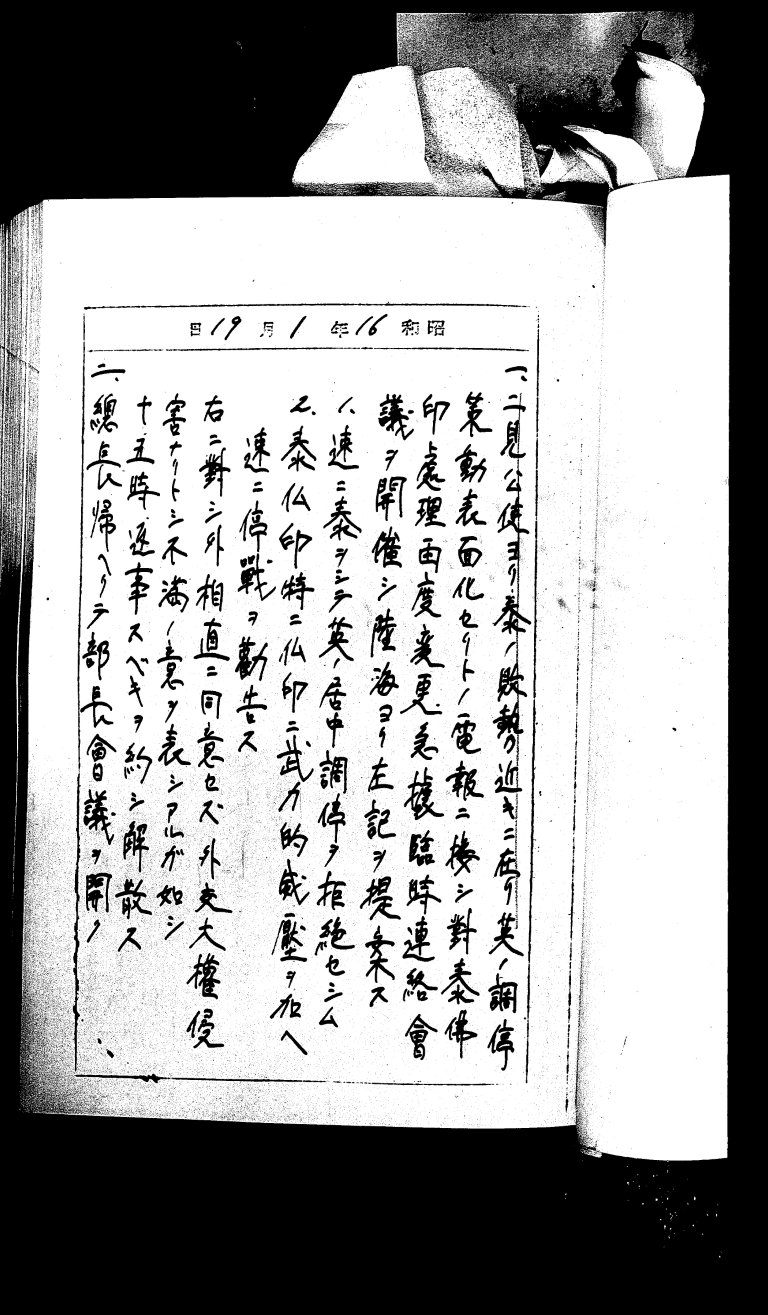 昭和16年1月19日
一、二見公使ヨリ泰ノ敗勢近キニ在リ英ノ調停
策動表面化セリトノ電報ニ接シ對泰佛
印処理再度変更急據臨時連絡會
議ヲ開催シ陸海ヨリ左記ヲ提案ス
1、速ニ泰ヲシテ英ノ居中調停ヲ拒絶セシム
2、泰仏印特ニ仏印ニ武力的威壓ヲ加ヘ
速ニ停戰ヲ勸告ス
右ニ對シ外相直ニ同意セズ外交大權侵
害ナリトシ不満ノ意ヲ表シアルガ如シ
十五時返事スベキヲ約シ解散ス
二、總長帰ヘリテ部長會議ヲ開ク